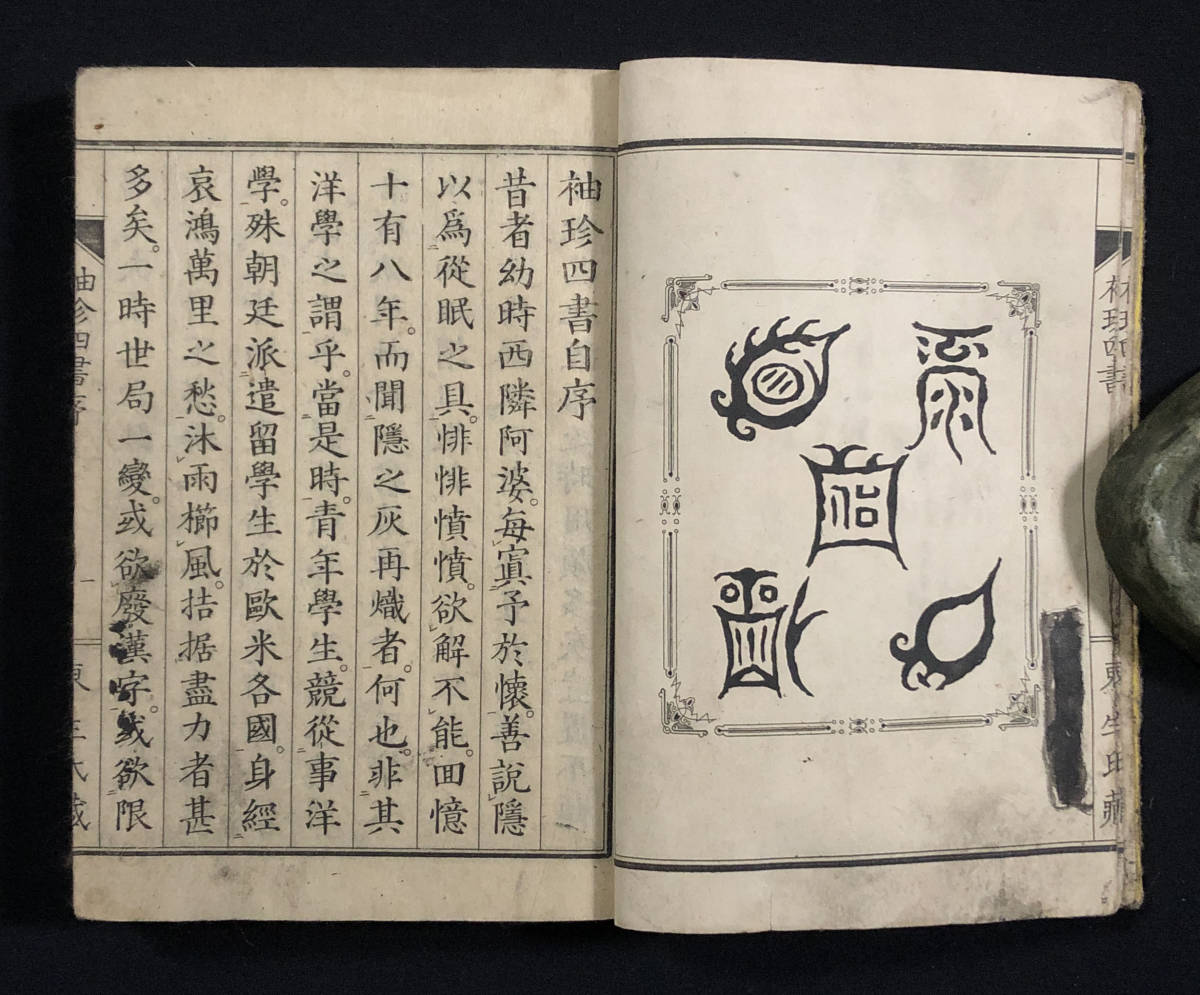 袖珍四書
袖珍四書自序
昔者幼時西隣阿婆。每寘予於懷。善說隱
以爲從眠之具。悱悱憤憤。欲解不能。回憶
十有八年。而聞隱之灰再熾者。何也。非其
洋學之謂乎。當是時。青年學生。競從事洋
學。殊朝廷派遣留學生於歐米各國。身經
哀鴻萬里之愁。沐雨櫛風。拮据盡力者甚
多矣。一時世局一變。或欲廢漢字。或欲限
袖珍四書序
一